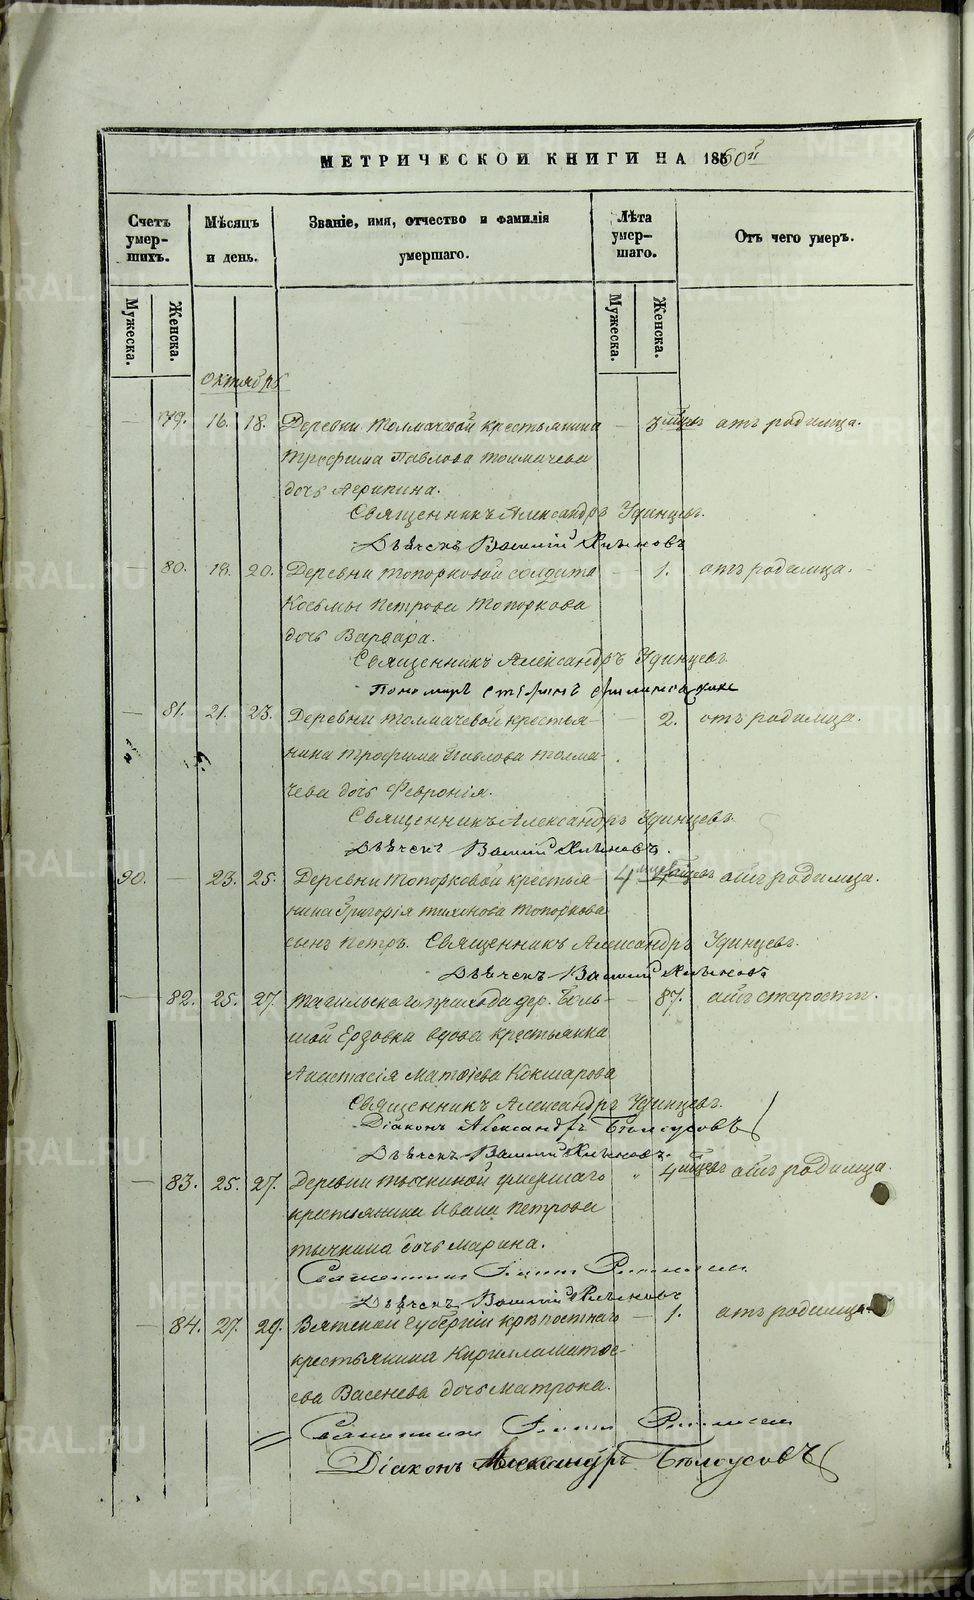 МЕТРИЧЕСКОЙ КНИГИ НА 1860й
Счетъ умер-шихъ.
Мѣсяцъ и день.
Званіе, имя, отчество и фамилія умершаго.
Лѣта умер-шаго.
Отъ чего умеръ.
Мужеска. Женска. Мужеска. Женска.
октябрь
— 79. 16. 18. Деревни Толмачевой крестьянина — 3 мцвъ отъ родимца.
Трофима Павлова Толмачева
дочь Агрипина.
Священникъ Александръ Удинцевъ.
Дьячекъ Василій Хлыновъ
— 80. 18. 20. Деревни Топорковой солдата — 1. отъ родимца.
Косьмы Петрова Топоркова
дочь Варвара.
Священникъ Александръ Удинцевъ.
Пономарь
— 81. 21. 23. Деревни Толмачевой крестья- — 2. отъ родимца.
нина Трофима Павлова Толма-
чева дочь Февронія.
Священникъ Александръ Удинцевъ.
Дьячекъ Василій Хлыновъ.
90. — 23. 25. Деревни Топорковой крестья 4 отъ родимца.
нина Григорія Тихонова Топоркова
сынъ Петръ. Священникъ Александръ Удинцевъ.
Дьячекъ Василій Хлыновъ
— 82. 25. 27. Тагильскаго прихода дер. Боль- — 87. отъ старости.
шой Ерзовки вдова крестьянка
Анастасія Матѳіева Кокшарова
Священникъ Александръ Удинцевъ.
Діаконъ Александръ Бѣлоусовъ
Дьячекъ Василій Хлыновъ.
— 83. 25. 27. Деревни Тычкиной умершаго " 4 мцвъ отъ родимца.
крестьянина Ивана Петрова
Тычкина дочь Марина.
Священникъ
Дьячекъ Василій Хлыновъ
— 84. 27. 29. Вятской Губерніи крѣпостнаго — 1. отъ родимца.
крестьянина Кирилла Матве-
ева Васенева дочь Матрона.
Священникъ
Діаконъ Александръ Бѣлоусовъ
METRIKI.GASO-URAL.RU